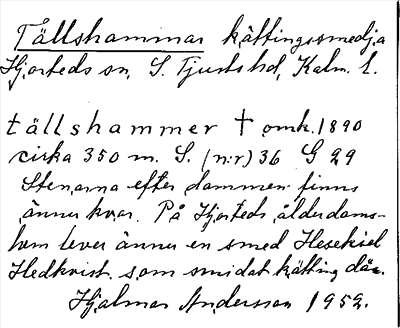 Tällshammar kättingssmedja
Hjorteds sn, S. Tjusts hd, Kalm. l.
tällshammer † omk. 1890
cirka 350 m. S. (n:r) 36 G 29
Stenarna efter dammen finns
ännu kvar. På Hjorteds ålderdoms-
hem lever ännu en smed Hesekiel
Hedkvist som smidat kätting där.
Hjalmar Andersson 1952.